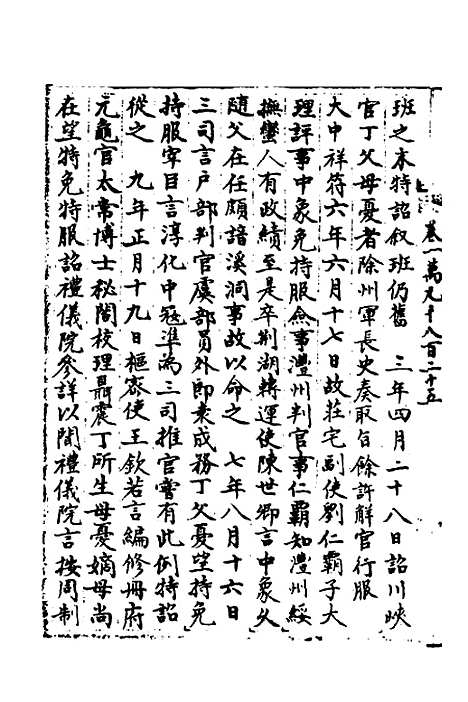 卷一萬九千八百二十五
班之本特詔叙班仍舊　三年四月二十八日詔川峽
官丁父母憂者除州軍長史奏取旨餘許觧官行服
大中祥符六年六月十七日故莊宅副使劉仁霸子大
理評事中象免持服僉事澧州判官事仁霸知澧州綏
撫蠻人有政績至是卒荆湖轉運使陳世卿言中象久
隨父在任頗諳溪洞事故以命之　七年八月十六日
三司言户部判官虞部員外郎袁成務丁父憂望持免
持服宰臣言淳化中冠準為三司推官嘗有此例特詔
從之　九年正月十九日樞宻使王欽若言編修冊府
元龜官太常博士秘閣校理聶震丁所生母憂嫡母尚
在望特免持服詔禮儀院參詳以聞禮儀院言按周制